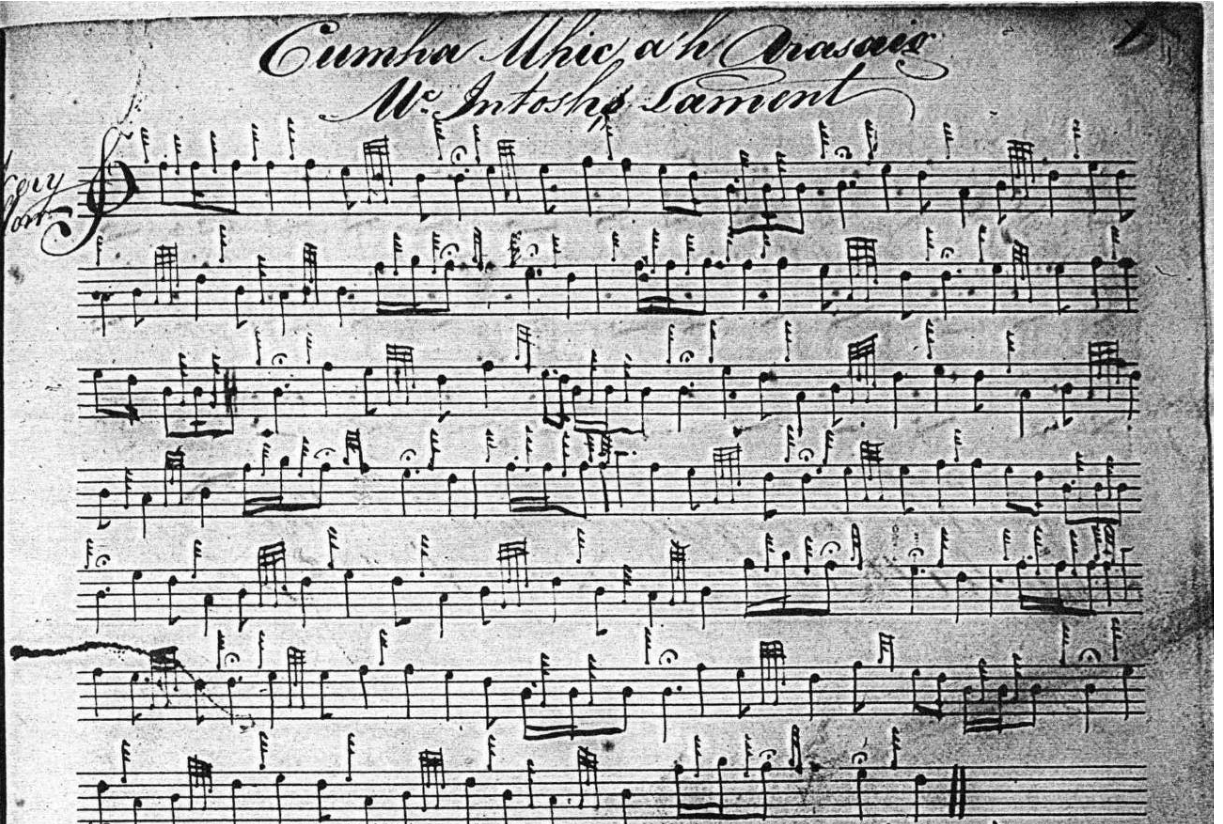 Cumha Mhic a'h Arasaig
Mc Intoshs Lament
Very